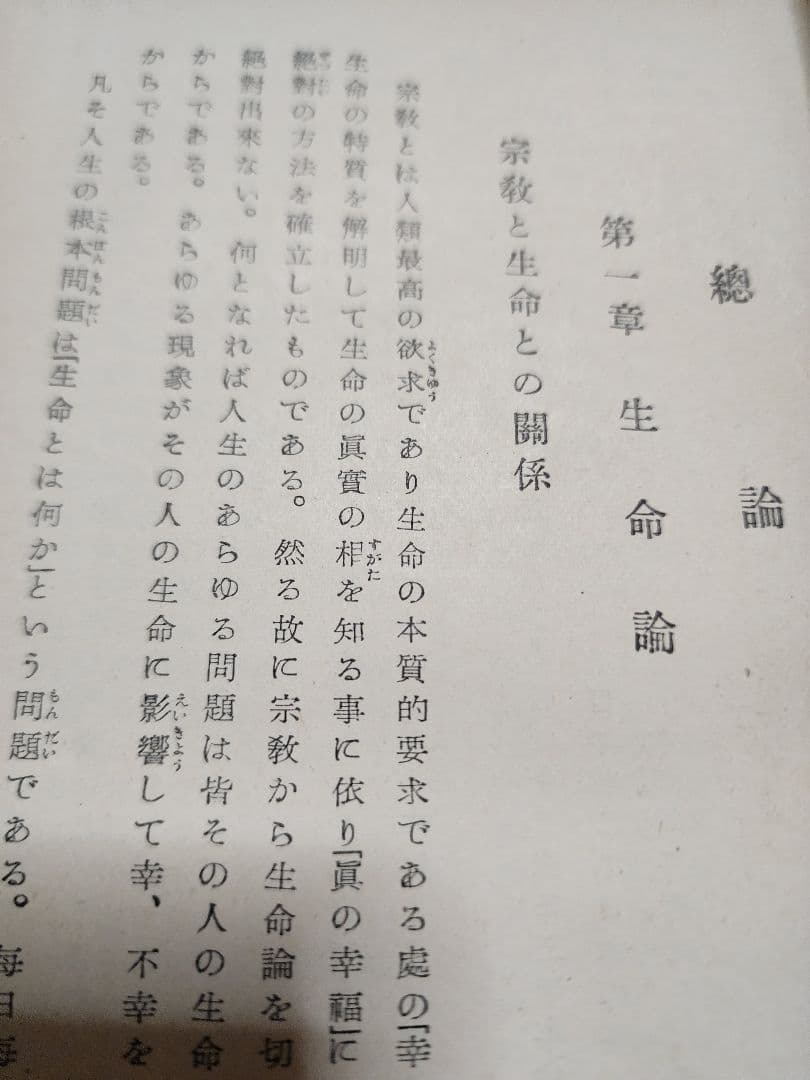 總論
第一章 生命論
宗教と生命との關係
宗教とは人類最高の欲求であり生命の本質的要求である處の「幸
生命の特質を解明して生命の眞實の相を知る事に依り「眞の幸福」に
絶對の方法を確立したものである。然る故に宗教から生命論を切
絶對出來ない。何となれば人生のあらゆる問題は皆その人の生命
からである。あらゆる現象がその人の生命に影響して幸、不幸を
からである。
凡そ人生の根本問題は「生命とは何か」という問題である。毎日毎